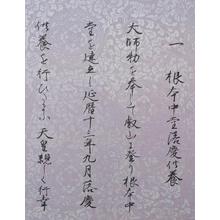 一 根本中堂落慶供養
大師勅を奉して叡山に登り根本中
堂を建立し延暦十三年九月落慶
供養を行ひ給ふ 天皇親しく行幸